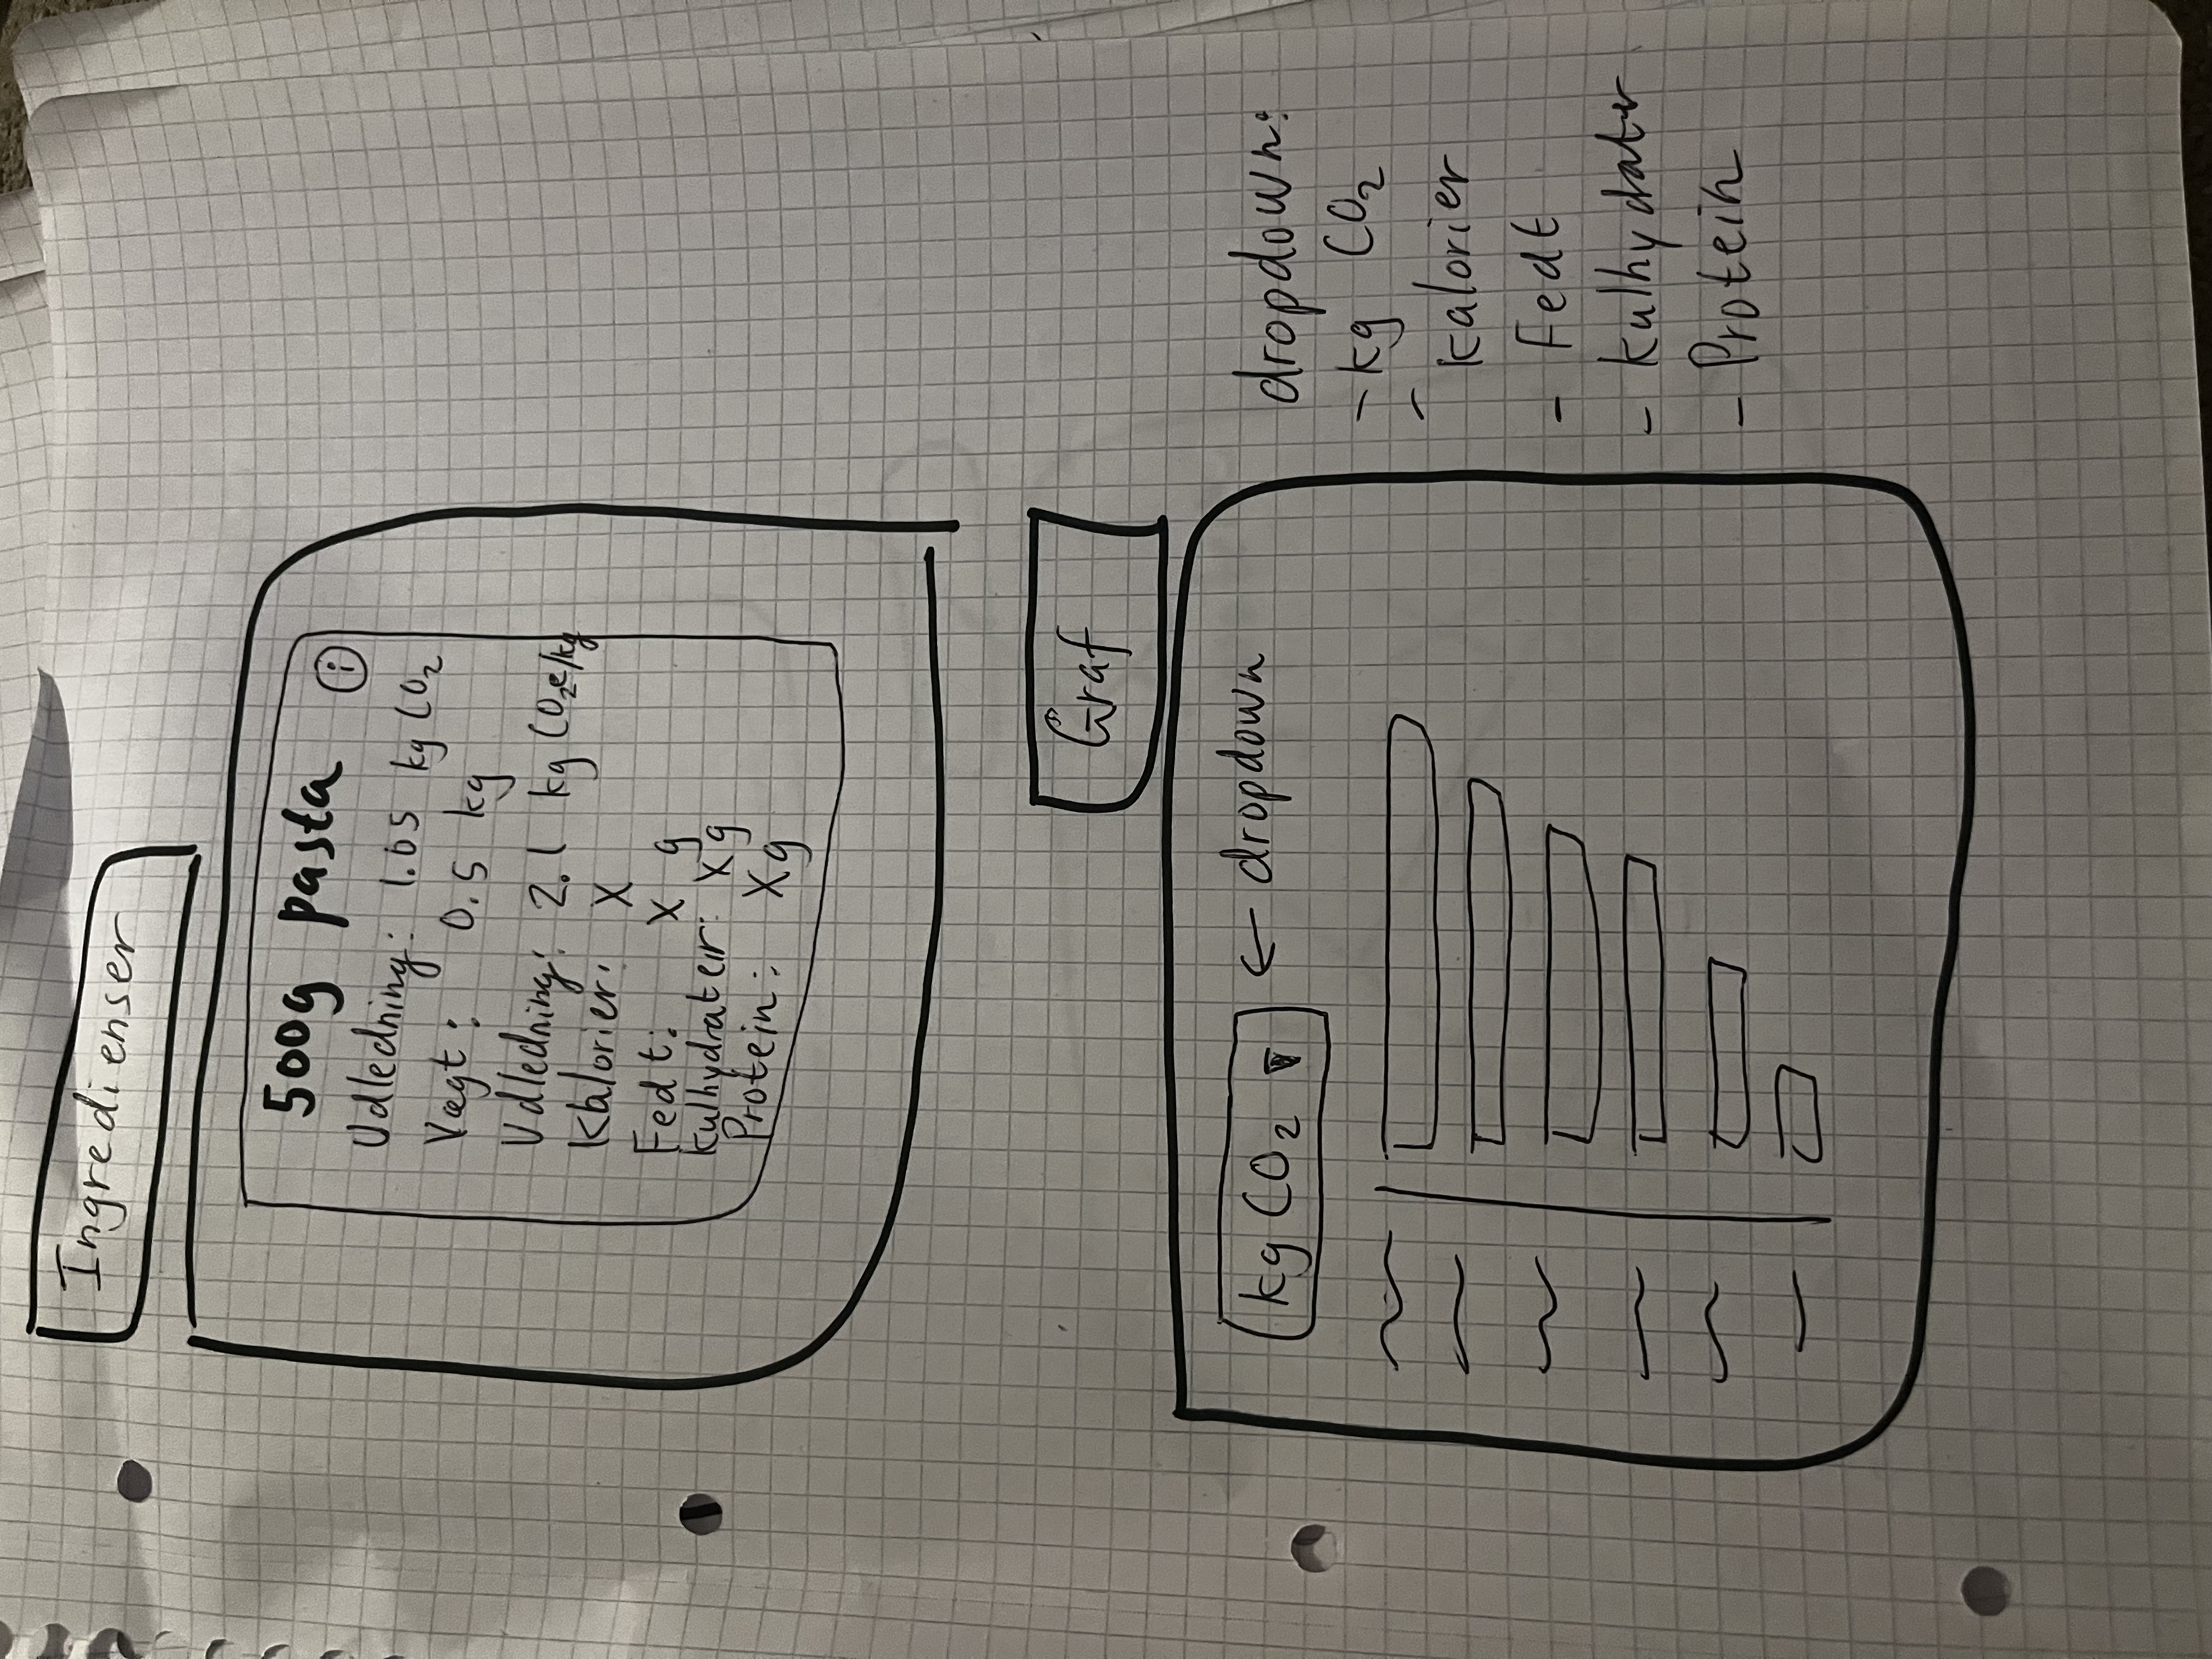 Ingredienser
500g pasta
i
Udledning: 1.05 kg CO2
Vægt: 0.5 kg
Udledning: 2.1 kg CO2e/kg
Kalorier: X
Fedt: X g
kulhydrater: X g
Protein: X g
Graf
kg CO2 ▼ ← dropdown
dropdown:
- kg CO2
- kalorier
- Fedt
- kulhydrater
- Protein